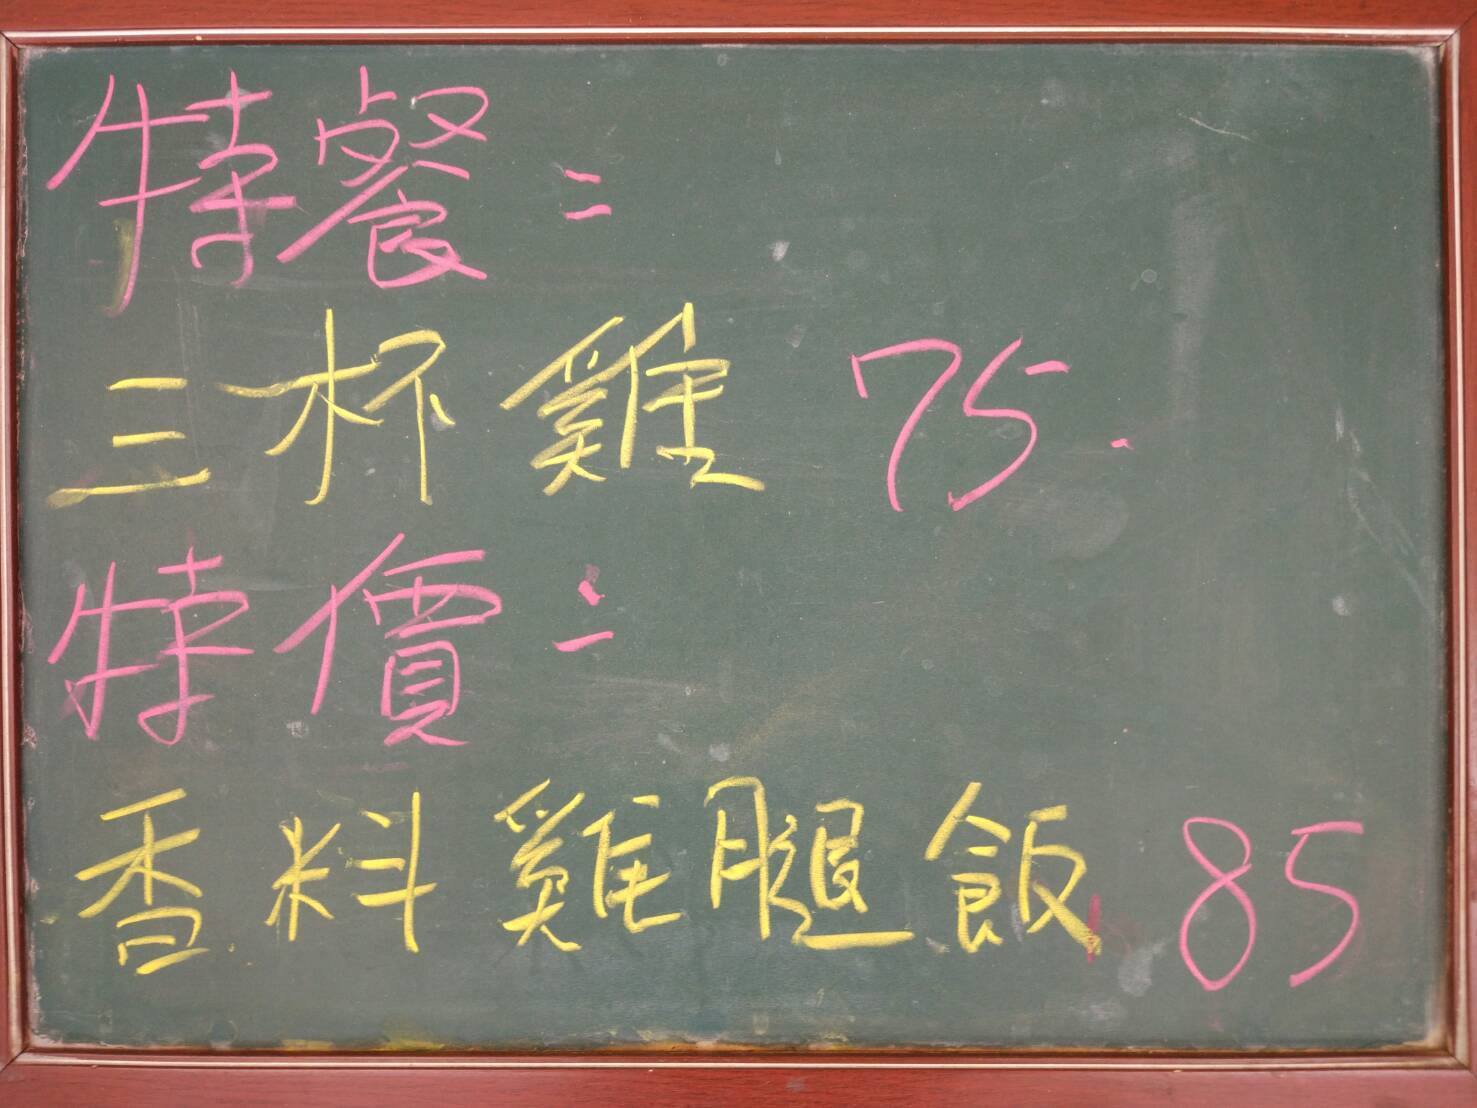 特餐：
三杯雞 75.
特價：
香料雞腿飯 85